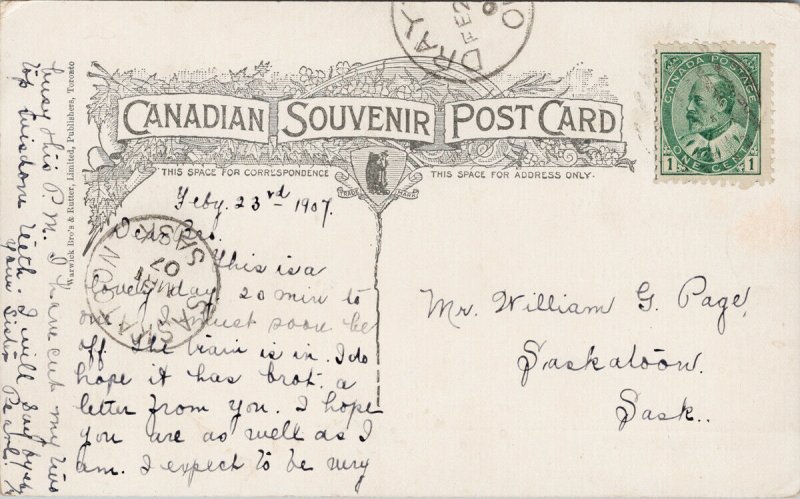 CANADIAN SOUVENIR POST CARD
THIS SPACE FOR CORRESPONDENCE
THIS SPACE FOR ADDRESS ONLY.
TRADE MARK
CANADA POSTAGE
ONE CENT
1 1
DRAY
FE 2
SASKATOON
MAR 1
07
SASK
Warwick Bro's & Rutter, Limited, Publishers, Toronto
Feby. 23rd 1907.
Dear Bro.
This is a
lovely day. 20 min to
one & I must soon be
off. The train is in. I do
hope it has brot. a
letter from you. I hope
you are as well as I
am. I expect to be very
busy this P.M. I have cut my two
top wisdom teeth. I will say bye bye
Your Sister Pearl.
Mr. William G. Page,
Saskatoon.
Sask..